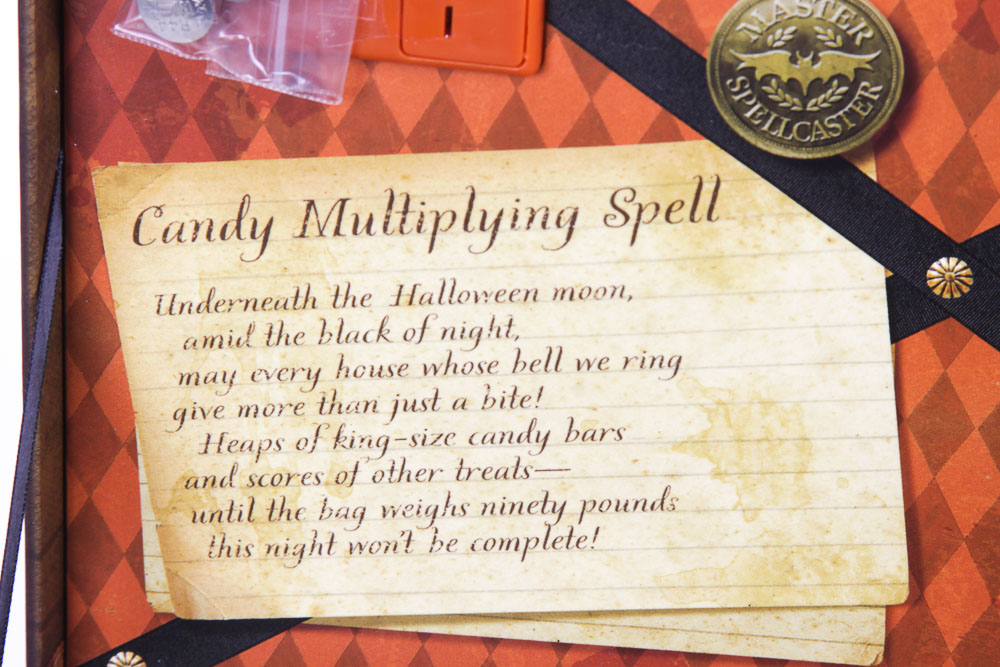 MASTER
SPELLCASTER
Candy Multiplying Spell
Underneath the Halloween moon,
amid the black of night,
may every house whose bell we ring
give more than just a bite!
Heaps of king-size candy bars
and scores of other treats—
until the bag weighs ninety pounds
this night won't be complete!